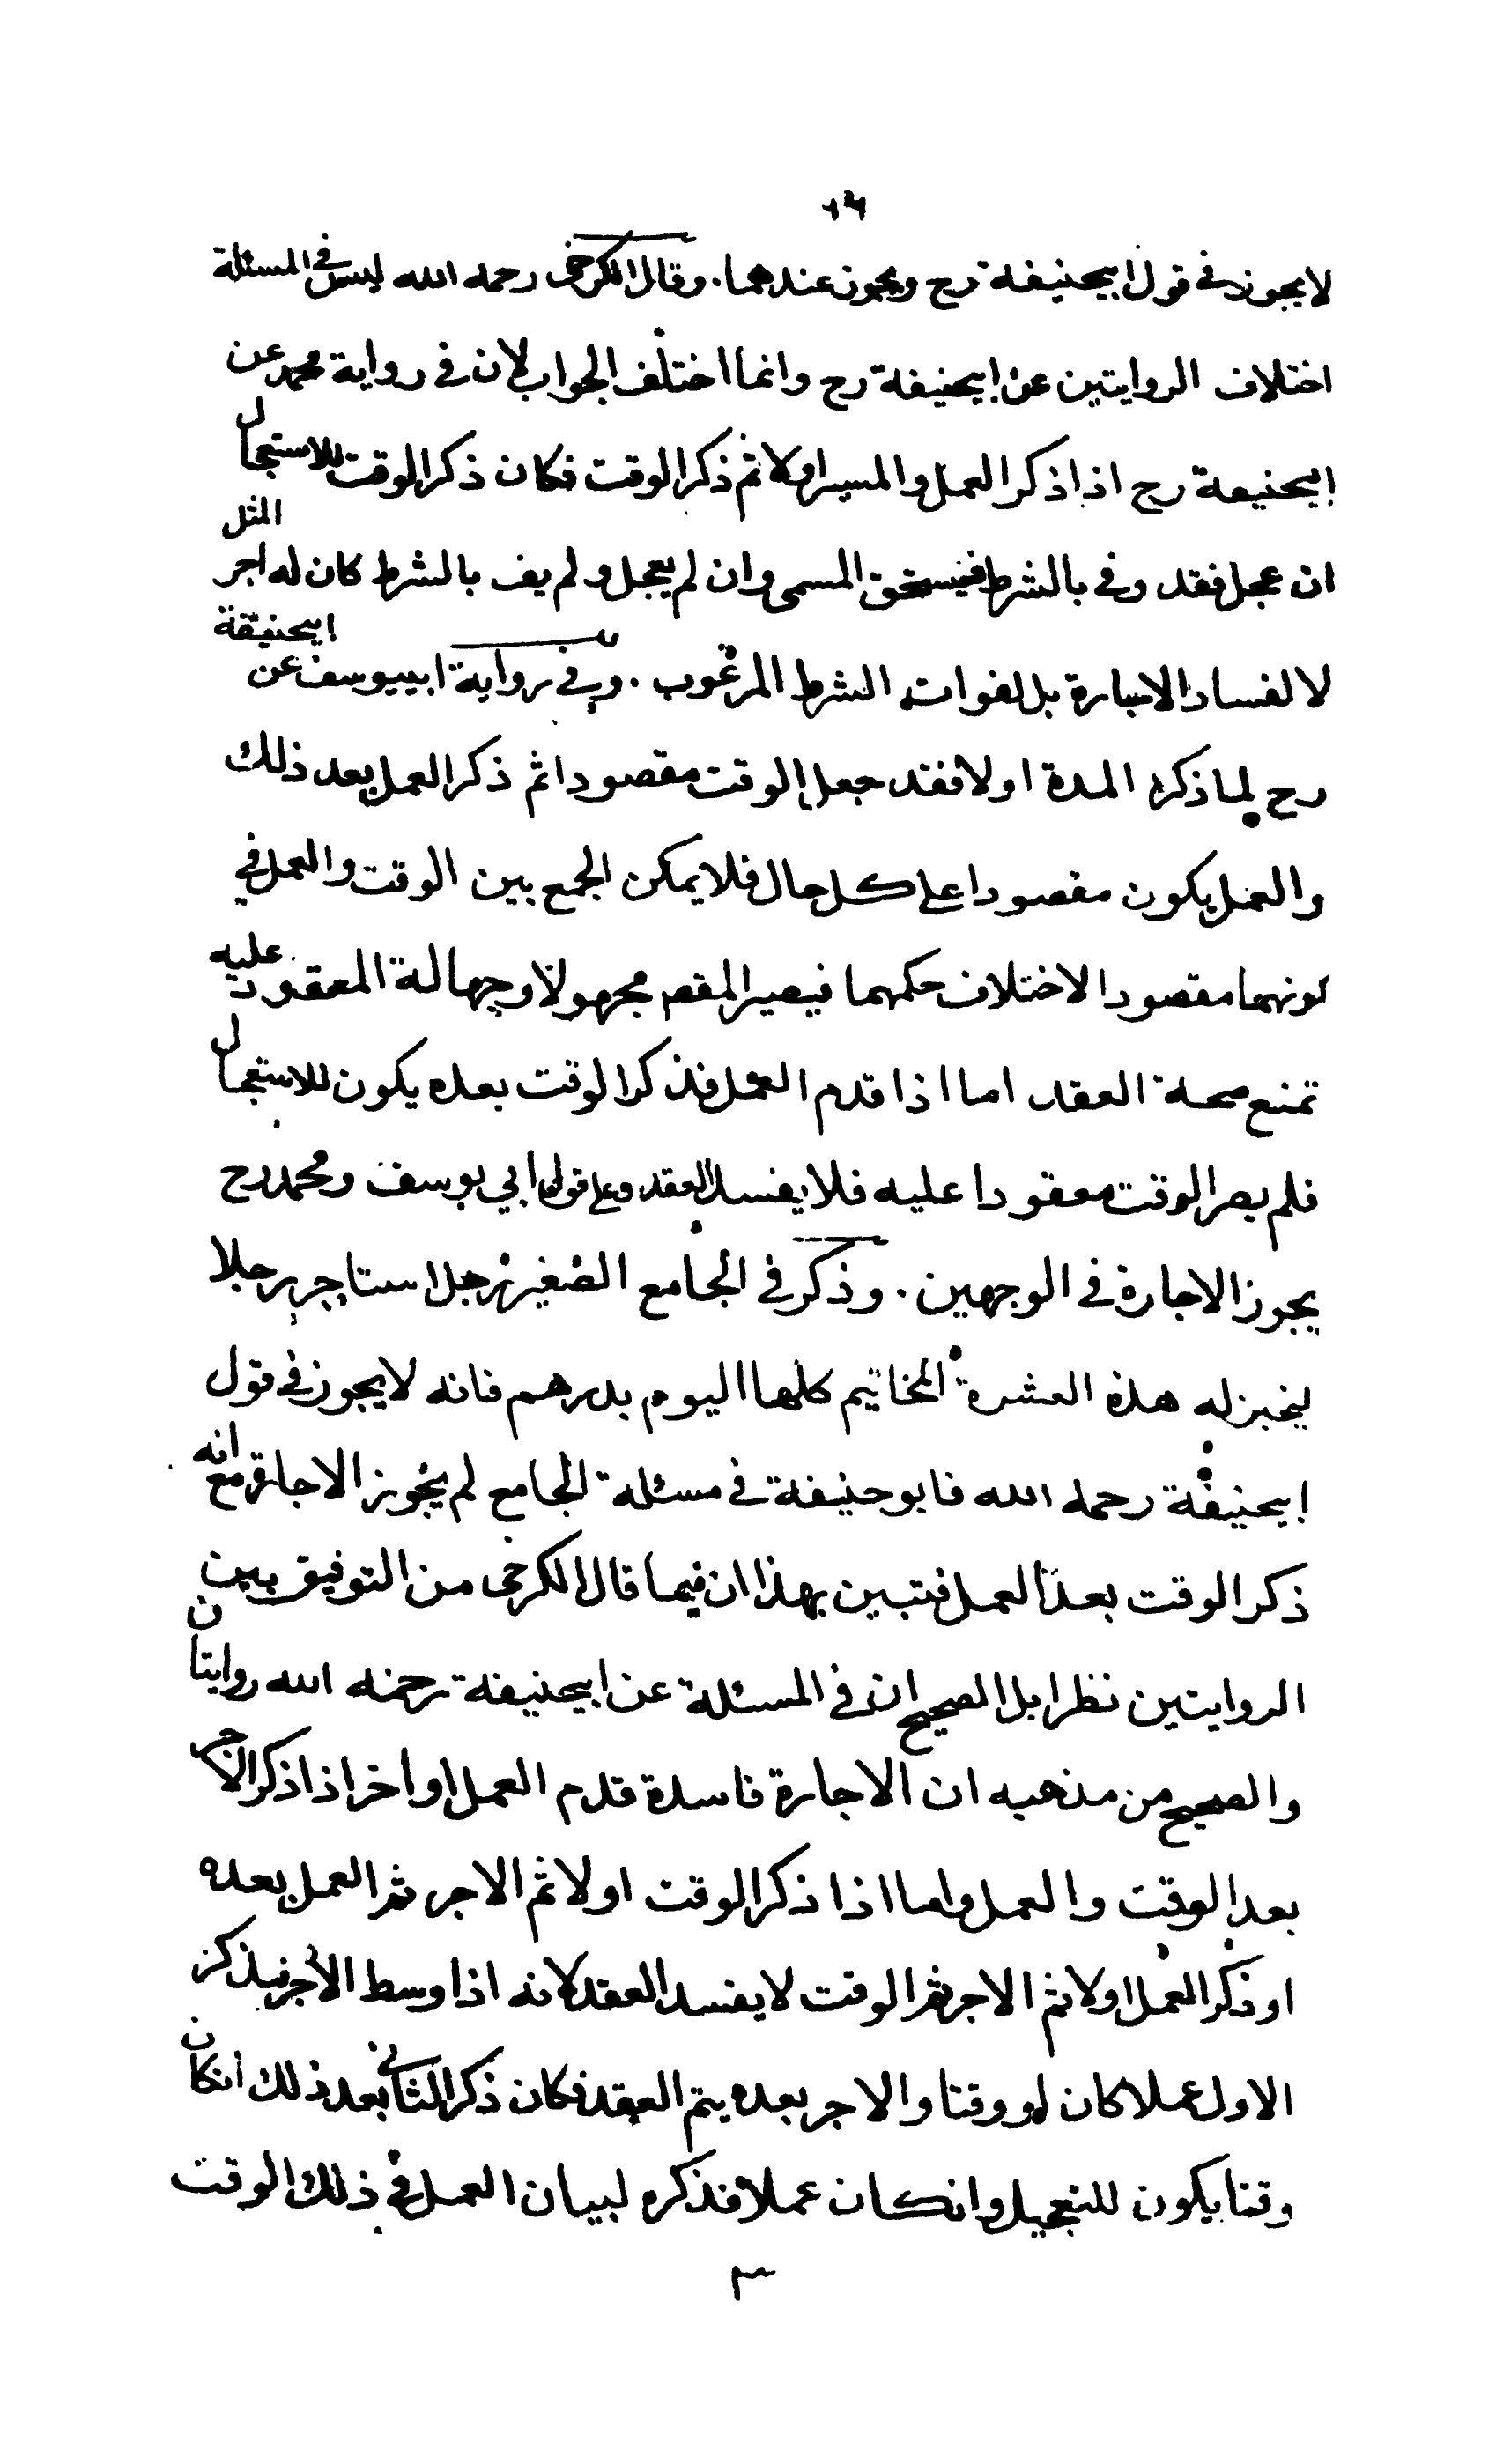 ١٦
لا يجوز في قول ابيحنيفة رح ويجوز عندهما. وقال الكرخي رحمه الله ليس في المسئلة
اختلاف الروايتين عن ابيحنيفة رح وانما اختلف الجواب لان في رواية محمد عن
ابيحنيفة رح اذا ذكر العمل والمسير اولا ثم ذكر الوقت فكان ذكر الوقت للاستعجال
ان عجل فقد وفى بالشرط فيستحق المسمى وان لم يعجل ولم يف بالشرط كان له اجر المثل
لا لفساد الاجارة بل لفوات الشرط المرغوب. وفي رواية ابييوسف عن ابيحنيفة
رح لما ذكر المدة اولا فقد جعل الوقت مقصودا ثم ذكر العمل بعد ذلك
والعمل يكون مقصودا على كل حال فلا يمكن الجمع بين الوقت والعمل في
كونهما مقصودا لاختلاف حكمهما فيصير المقصم مجهولا وجهالة المعقود عليه
تمنع صحة العقد اما اذا قدم العمل فذكر الوقت بعده يكون للاستعجال
فلم يصر الوقت معقودا عليه فلا يفسد العقد وعلى قول ابي يوسف ومحمد رح
يجوز الاجارة في الوجهين. وذكر في الجامع الصغير رجل استاجر رجلا
ليخبز له هذه العشرة المخاتيم كلها اليوم بدرهم فانه لا يجوز في قول
ابيحنيفة رحمه الله فابو حنيفة في مسئلة الجامع لم يجوز الاجارة مع انه
ذكر الوقت بعد العمل فتبين بهذا ان فيما قال الكرخى من التوفيق بين
الروايتين نظرا بل الصحيح ان في المسئلة عن ابيحنيفة رحمه الله روايتان
والصحيح من مذهبه ان الاجارة فاسدة قدم العمل او اخر اذا ذكر الاجر
بعد الوقت والعمل واما اذا ذكر الوقت اولا ثم الاجر ثم العمل بعده
او ذكر العمل اولا ثم الاجر ثم الوقت لا يفسد العقد لانه اذا وسط الاجر فبذكر
الاول عملا كان او وقتا والاجر بعده يتم العقد فكان ذكر الثاني بعد ذلك انكان
وقتا يكون للتعجيل وانكان عملا فذكره لبيان العمل في ذلك الوقت